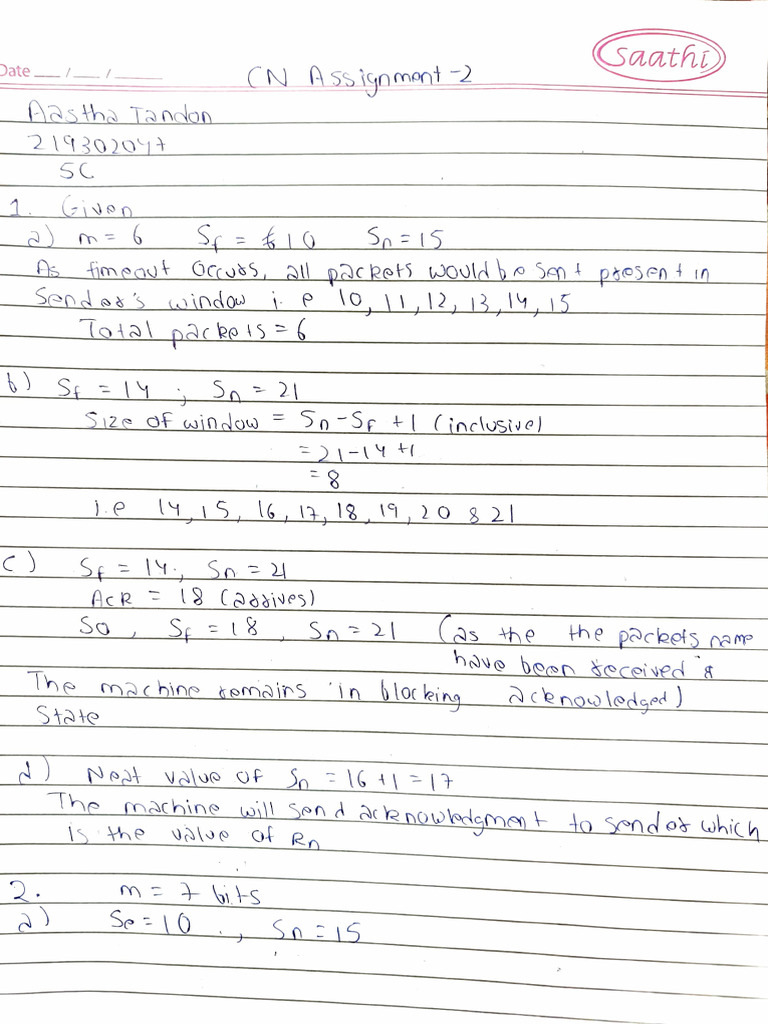 Date __/__/____
Saathi
CN Assignment-2
Aastha Tandon
219302047
5C
1. Given
a) m = 6 Sf = 10 Sn = 15
As timeout occurs, all packets would be sent present in
Sender's window i.e 10, 11, 12, 13, 14, 15
Total packets = 6
b) Sf = 14 ; Sn = 21
Size of window = Sn - Sf + 1 (inclusive)
= 21 - 14 + 1
= 8
i.e 14, 15, 16, 17, 18, 19, 20 & 21
c) Sf = 14 ; Sn = 21
Ack = 18 (arrives)
So, Sf = 18, Sn = 21 (as the the packets name
have been received &
The machine remains in blocking acknowledged)
State
d) Next value of Sn = 16 + 1 = 17
The machine will send acknowledgment to sender which
is the value of Rn
2. m = 7 bits
a) Sf = 10 , Sn = 15